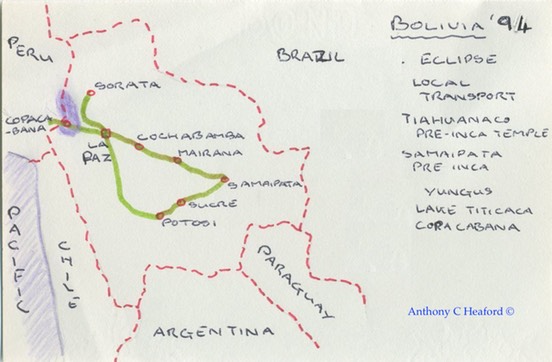 PERU
BRAZIL
SORATA
COPACA
-BANA
LA
PAZ
COCHABAMBA
MAIRANA
SAMAIPATA
SUCRE
POTOSI
PACIFIC
CHILE
PARAGUAY
ARGENTINA
BOLIVIA '94
. ECLIPSE
LOCAL
TRANSPORT
TIAHUANACO
PRE-INCA TEMPLE
SAMAIPATA
PRE INCA
YUNGUS
LAKE TITICACA
COPACABANA
Anthony C Heaford ©